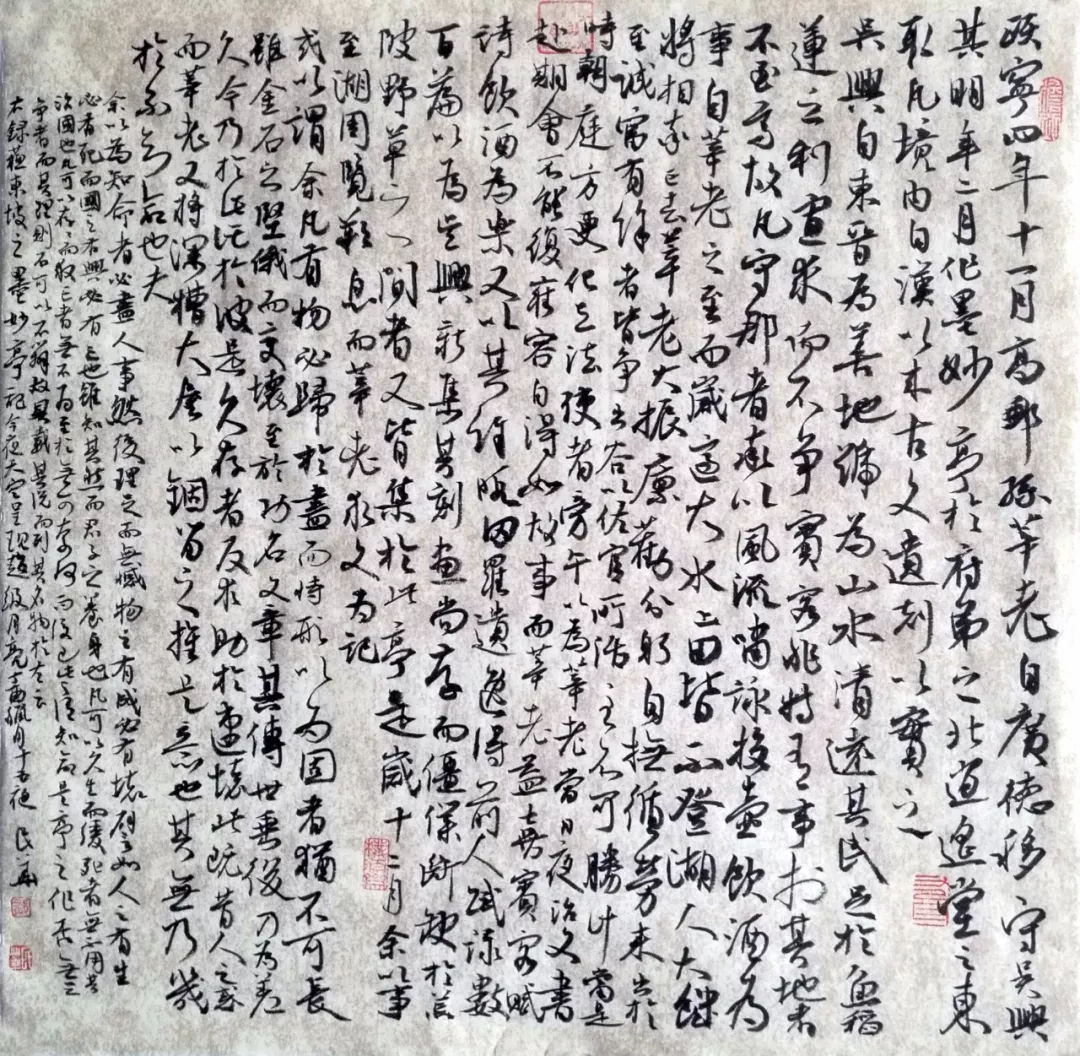 熙寧四年十一月高郵孫莘老自廣德移守吳興
其明年二月作墨妙亭於府第之北逍遙堂之東
取凡境內自漢以來古文遺刻以實之
吳興自東晉為善地號為山水清遠其民足於魚稻
蓮之利寡求而不爭賓客非特有事於其地者
不至焉故凡守郡者率以風流嘯詠投壺飲酒為
事自莘老之至而歲適大水上田皆不登湖人大饑
將相率亡去莘老大振廩勸分躬自撫循勞來出於
至誠富有餘者皆爭出谷以佐官所活至不可勝計當是
時朝廷方更化立法使者旁午以為莘老當日夜治文書
赴期會不能復雍容自得如故事而莘老益喜賓客賦
詩飲酒為樂又以其餘暇網羅遺逸得前人賦詠數
百篇以為吳興新集其刻畫尚存而僵僕斷缺於荒
陂野草之間者又皆集於此亭是歲十二月余以事
至湖周覽歎息而莘老求文為記
或以謂余凡有物必歸於盡而恃形以為固者猶不可長
雖金石之堅俄而變壞至於功名文章其傳世垂後乃為差
久今乃於此託於彼是久存者反求助於速壞此既昔人之惑
而莘老又將深檐大屋以錮留之推是意也其無乃幾
於不知命也夫
余以為知命者必盡人事然後理足而無憾物之有成必有壞譬如人之有生
必有死而國之有興必有亡也雖知其然而君子之養身也凡可以久生而緩死者無不用其
治國也凡可以存而救亡者無不為至於不可奈何而後已此之謂知命是亭之作否無足
爭者而其理則不可以不辨故具載其說而列其名物於左云
大錄蘇東坡之墨妙亭記今夜天空呈現超級月亮 月十五夜